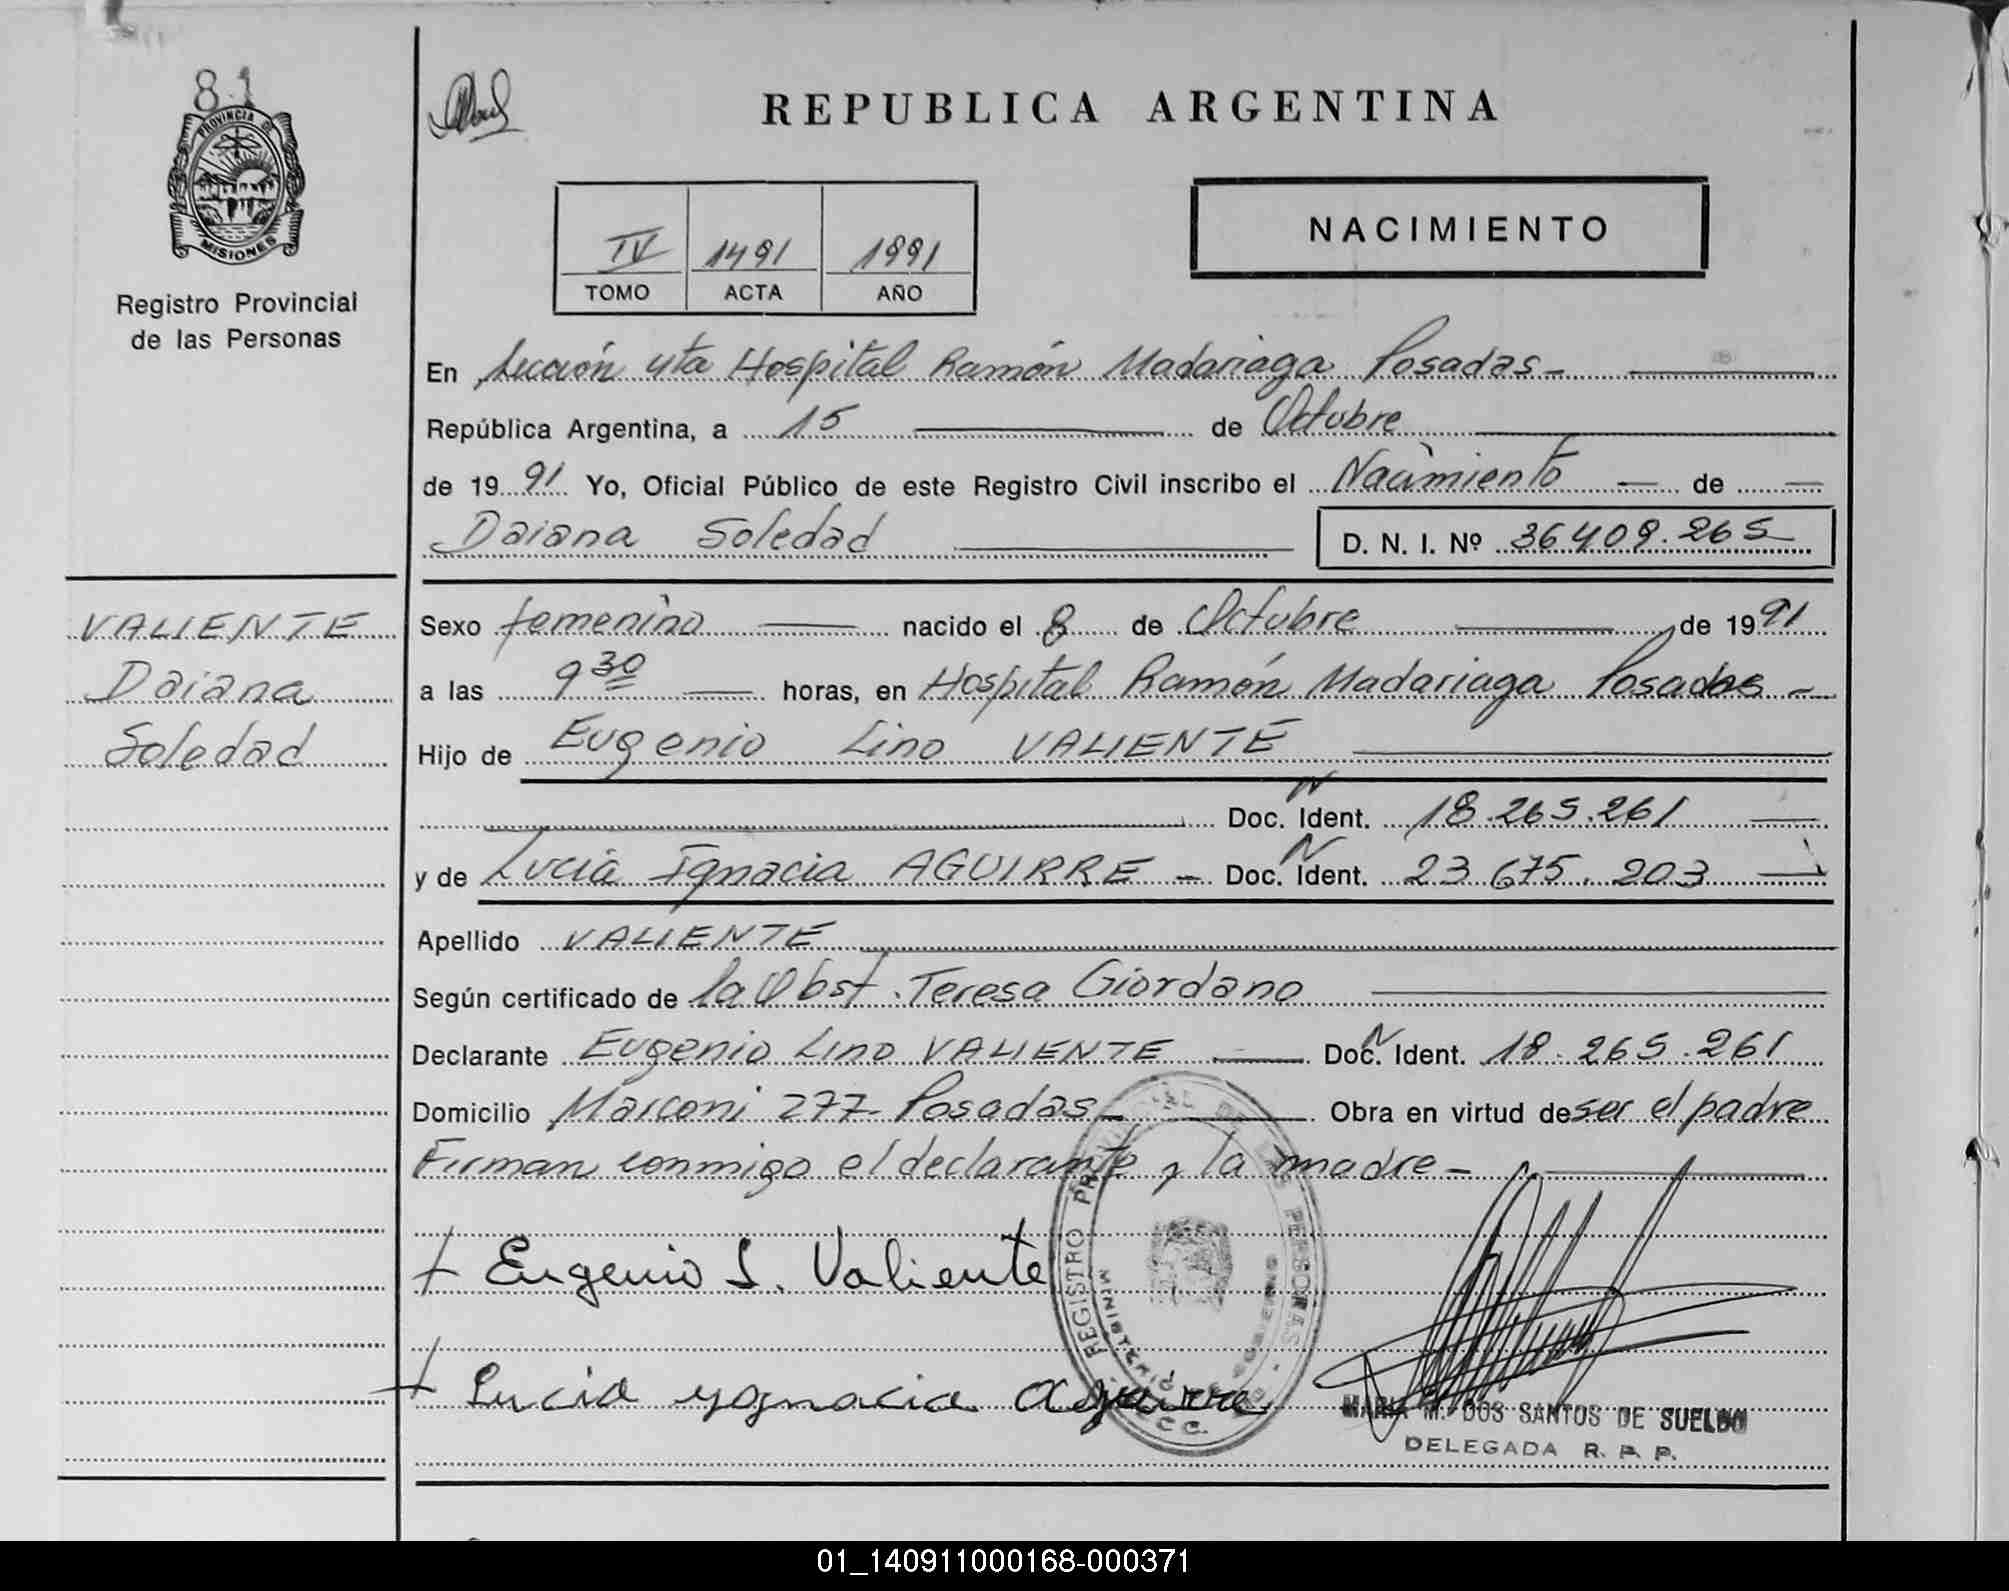 81
PROVINCIA DE
MISIONES
Registro Provincial
de las Personas
REPUBLICA ARGENTINA
IV 1491 1991
TOMO ACTA AÑO
NACIMIENTO
En Sección 4ta Hospital Ramón Madariaga Posadas
República Argentina, a 15 de Octubre
de 1991 Yo, Oficial Público de este Registro Civil inscribo el Nacimiento de
Daiana Soledad D. N. I. Nº 36.409.265
VALIENTE
Daiana
Soledad
Sexo femenino nacido el 8 de Octubre de 1991
a las 9 30 horas, en Hospital Ramón Madariaga Posadas
Hijo de Eugenio Lino VALIENTE
Doc. Ident. 18.265.261
y de Lucia Ignacia AGUIRRE Doc. Ident. 23.675.203
Apellido VALIENTE
Según certificado de la Obst. Teresa Giordano
Declarante Eugenio Lino VALIENTE Doc. Ident. 18.265.261
Domicilio Marconi 277 Posadas Obra en virtud de ser el padre
Firman conmigo el declarante y la madre
Eugenio L. Valiente
Lucia ygnacia aguirre
REGISTRO PROVINCIAL DE LAS PERSONAS
MINISTERIO DE GOBIERNO
MARIA M. DOS SANTOS DE SUELDO
DELEGADA R. P. P.
01_140911000168-000371